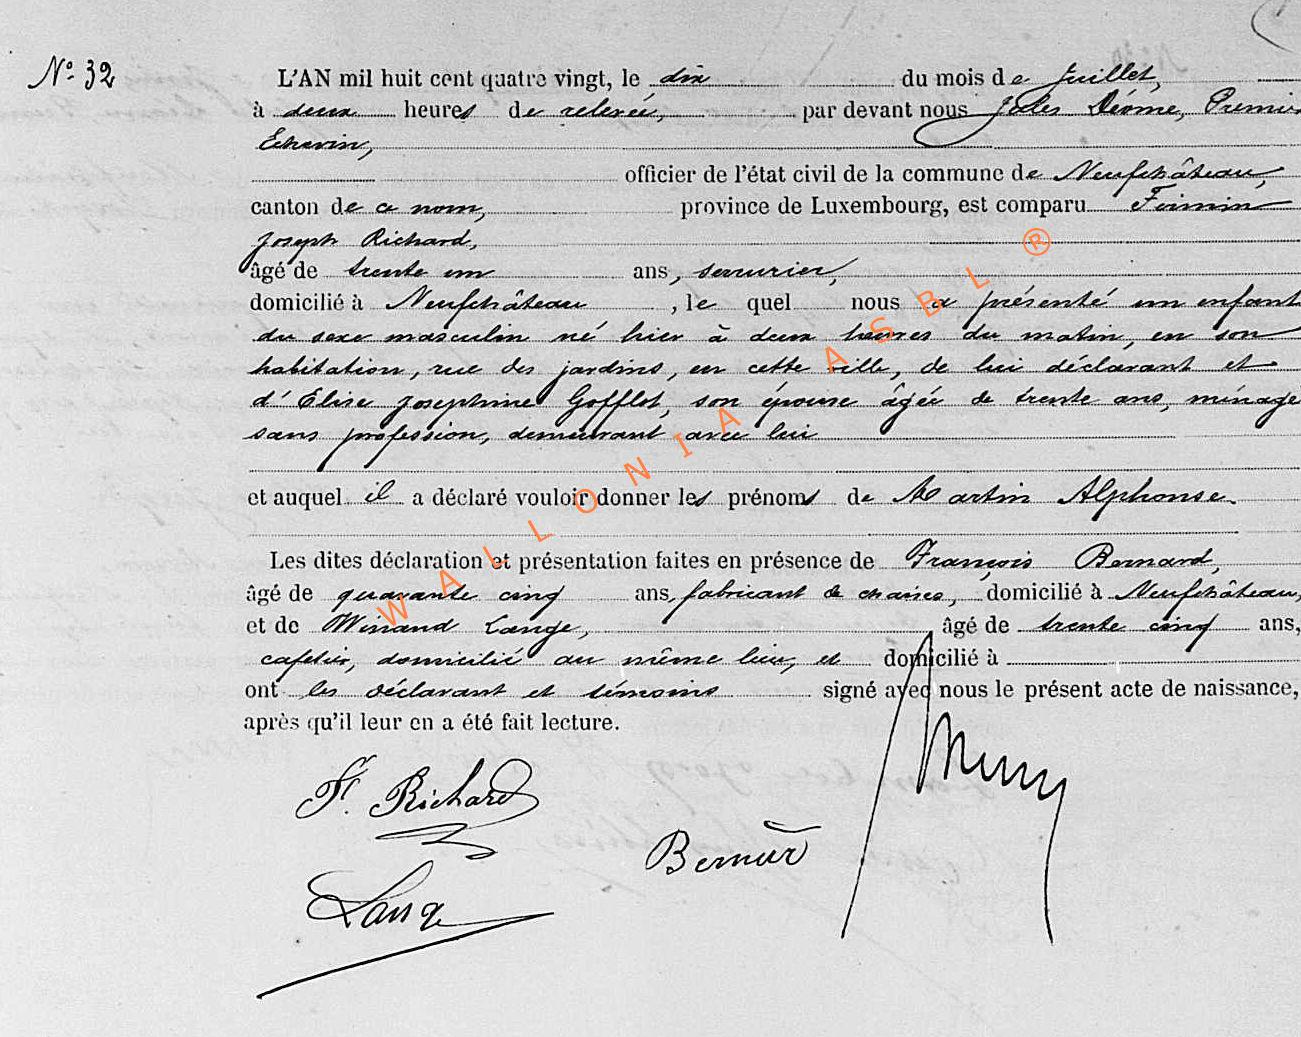 N° 32
L'AN mil huit cent quatre vingt, le dix du mois de Juillet,
à deux heures de relevée, par devant nous Jules Déome, Premier
Echevin,
officier de l'état civil de la commune de Neufchâteau,
canton de ce nom, province de Luxembourg, est comparu Firmin
Joseph Richard,
âgé de trente un ans, serrurier,
domicilié à Neufchâteau, le quel nous a présenté un enfant
du sexe masculin né hier à deux heures du matin, en son
habitation, rue des jardins, en cette ville, de lui déclarant et
d'Elise Josephine Gofflot, son épouse âgée de trente ans, ménagère
sans profession, demeurant avec lui
et auquel il a déclaré vouloir donner les prénoms de Martin Alphonse.
Les dites déclaration et présentation faites en présence de François Bernard,
âgé de quarante cinq ans, fabricant de chaises, domicilié à Neufchâteau,
et de Winand Lange, âgé de trente cinq ans,
cafetier, domicilié au même lieu, et domicilié à
ont les déclarant et témoins signé avec nous le présent acte de naissance,
après qu'il leur en a été fait lecture.
Ft. Richard
Bernard
Lange
WALLONIA ASBL ®